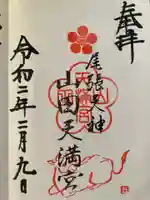 奉拝
尾張天神
山田天満宮
令和二年二月九日